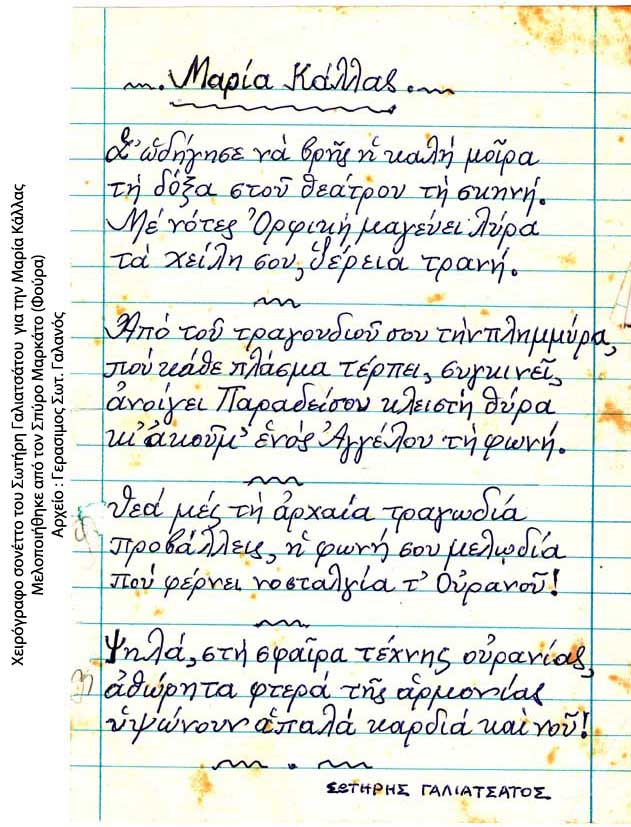 Χειρόγραφο σονέττο του Σωτήρη Γαλιατσάτου για την Μαρία Κάλλας
Μελοποιήθηκε από τον Σπύρο Μαρκάτο (Φούρα)
Αρχείο : Γεράσιμος Σωτ. Γαλανός
Μαρία Κάλλας.
Σ' ὡδήγησε νά βρῇς ἡ καλή μοῖρα
τή δόξα στοῦ θεάτρου τή σκηνή.
Μέ νότες Ὀρφική μαγεύει λύρα
τά χείλη σου, ἱέρεια τρανή.
Ἀπό τοῦ τραγουδιοῦ σου τήν πλημμύρα,
πού κάθε πλάσμα τέρπει, συγκινεῖ,
ἀνοίγει Παραδείσου κλειστή θύρα
κι' ἀκοῦμ' ἑνός Ἀγγέλου τή φωνή.
Θεά μές τή ἀρχαία τραγωδία
προβάλλεις, ἡ φωνή σου μελῳδία
πού φέρνει νοσταλγία τ' Οὐρανοῦ!
Ψηλά, στή σφαῖρα τέχνης οὐρανίας,
ἀθώρητα φτερά τῆς ἁρμονίας
ὑψώνουν ἁπαλά καρδιά καί νοῦ!
ΣΩΤΗΡΗΣ ΓΑΛΙΑΤΣΑΤΟΣ